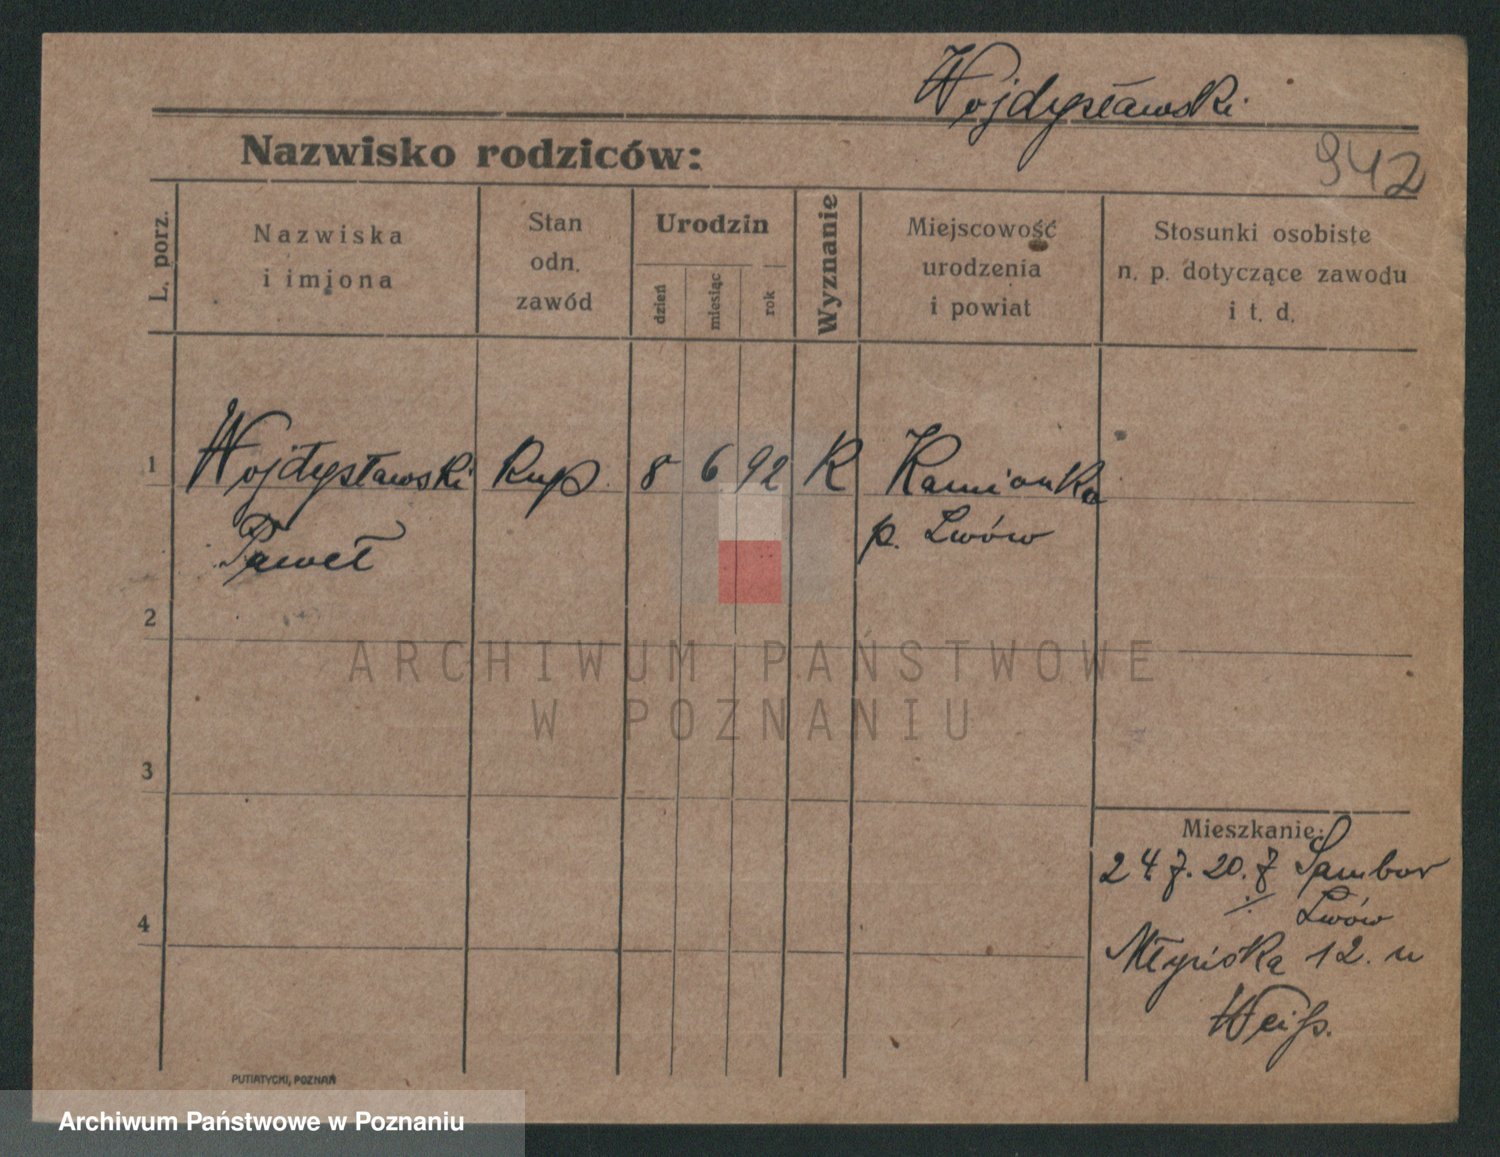 Wojdysławski
942
Nazwisko rodziców:
L. porz.
Nazwiska
i imiona
Stan
odn.
zawód
Urodzin
dzień
miesiąc
rok
Wyznanie
Miejscowość
urodzenia
i powiat
Stosunki osobiste
n. p. dotyczące zawodu
i t. d.
1 Wojdysławski Kup. 8 6 92 R Kamionka
Paweł p. Lwów
2
3
4
Mieszkanie:
24.7.20. z Sambor
Lwów
Młyńska 12. u
Weiß.
PUTIATYCKI, POZNAŃ
ARCHIWUM PAŃSTWOWE
W POZNANIU
Archiwum Państwowe w Poznaniu